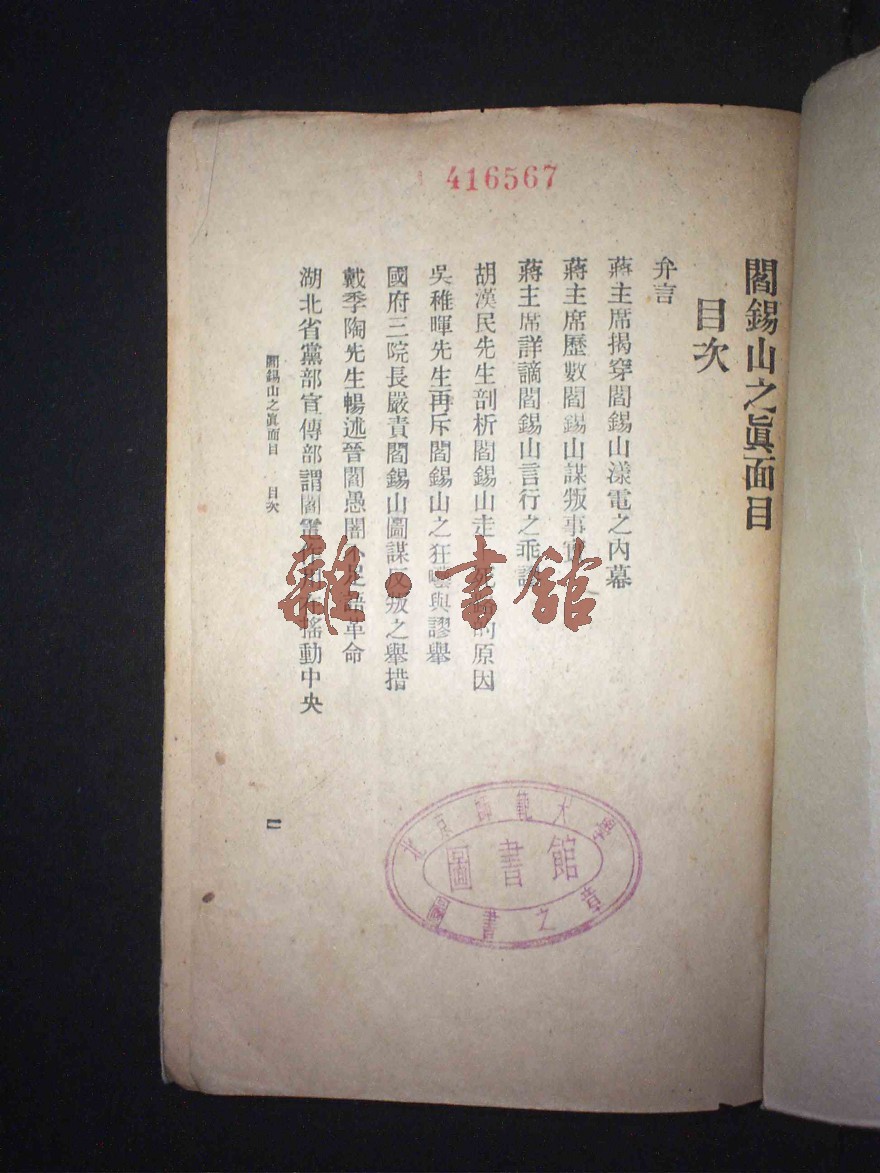 416567
閻錫山之眞面目
目次
弁言
蔣主席揭穿閻錫山漾電之內幕
蔣主席歷數閻錫山謀叛事實
蔣主席詳謫閻錫山言行之乖謬
胡漢民先生剖析閻錫山走 的原因
吳稚暉先生再斥閻錫山之狂囈與謬舉
國府三院長嚴責閻錫山圖謀反叛之舉措
戴季陶先生暢述晉閻愚闇不足語革命
湖北省黨部宣傳部謂閻電 搖動中央
閻錫山之眞面目 目次
一
雜·書館
北京師範大學
圖書館
圖書之章